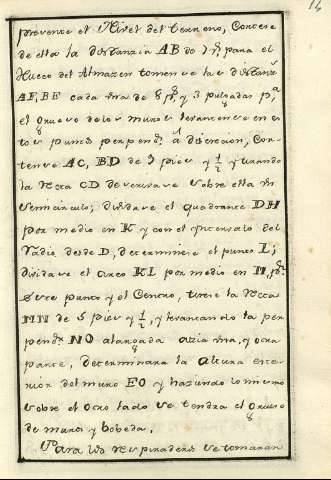 14
prevence el Nivel del terreno, Cortese
de ella la distanzia AB de 7 p.s para el
Hueco del Almazen tomense las distanz.s
AF, BE cada vna de 8 p.s y 3 pulgadas p.a
el grueso de los muros levantense en es
tos puntos perpend.s á discrecion, Cor-
tense AC, BD de 3 pies y ½ y tirando
la recta CD descrivase sobre ella vn
semicirculo; dividase el quadrante DH
por medio en K y con el intervalo del
Radio desde D, determinese el punto L;
dividase el arco KL por medio en M, p.r
este punto y el Centro, tirese la recta
MN de 5 pies y ½, y levantando la per
pend.r NO alargada azia vna, y otra
parte, determinara la altura exte-
rior del muro EO y haziendo lo mismo
sobre el otro lado se tendra el grueso
de muros y bobeda.
Para los respiraderos se tomaran